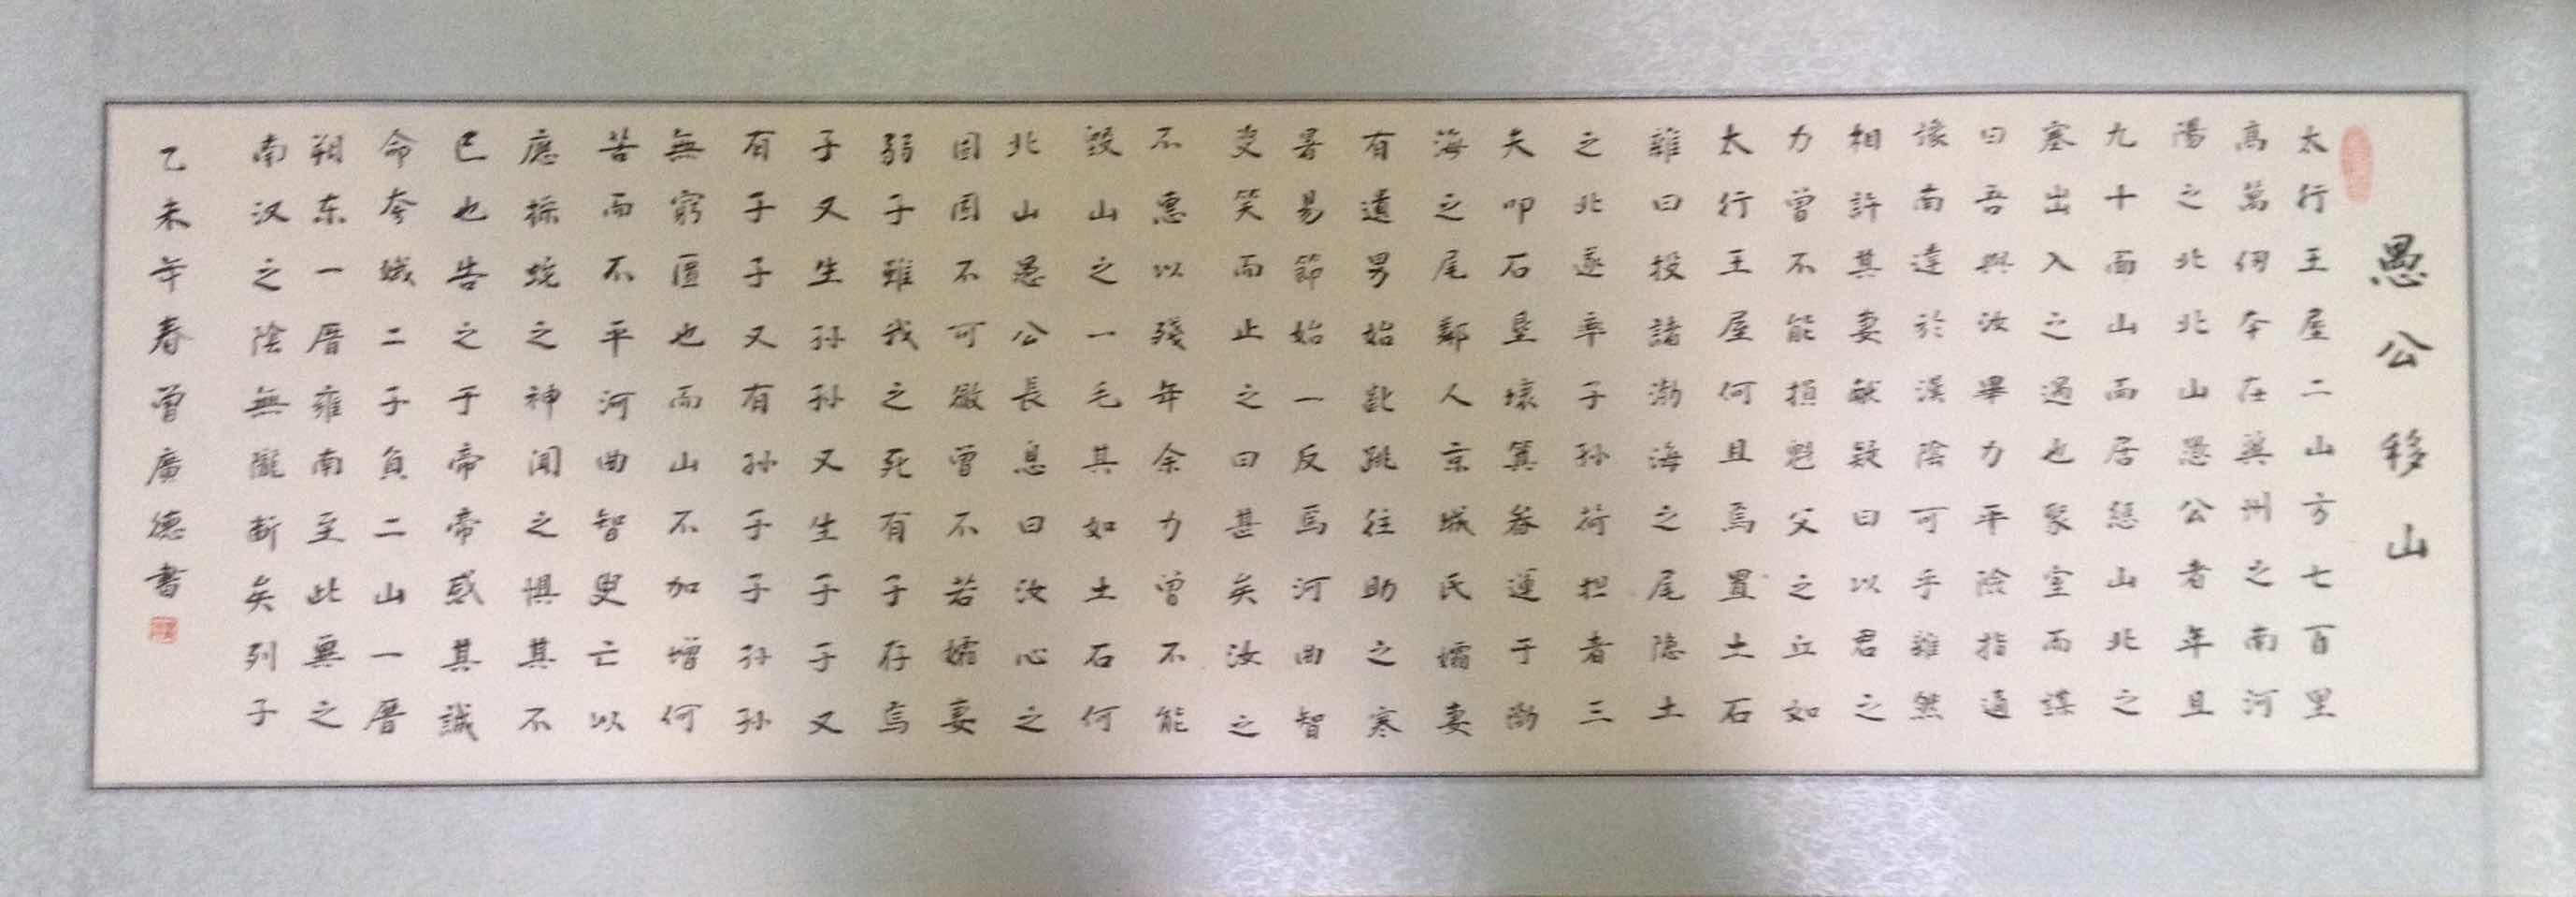 愚公移山
太行王屋二山方七百里
高萬仞本在冀州之南河
陽之北北山愚公者年且
九十面山而居懲山北之
塞出入之迂也聚室而謀
曰吾與汝畢力平險指通
豫南達於漢陰可乎雜然
相許其妻獻疑曰以君之
力曾不能損魁父之丘如
太行王屋何且焉置土石
雜曰投諸渤海之尾隐土
之北遂率子孙荷担者三
夫叩石垦壤箕畚運于渤
海之尾鄰人京城氏孀妻
有遺男始龀跳往助之寒
暑易節始一反焉河曲智
叟笑而止之曰甚矣汝之
不惠以殘年余力曾不能
毀山之一毛其如土石何
北山愚公長息曰汝心之
固固不可徹曾不若孀妻
弱子雖我之死有子存焉
子又生孙孙又生子子又
有子子又有孙子子孙孙
無窮匱也而山不加增何
苦而不平河曲智叟亡以
應操蛇之神闻之惧其不
已也告之于帝帝感其誠
命夸娥二子負二山一厝
朔东一厝雍南至此冀之
南汉之陰無隴断矣列子
乙未年春曾廣德書